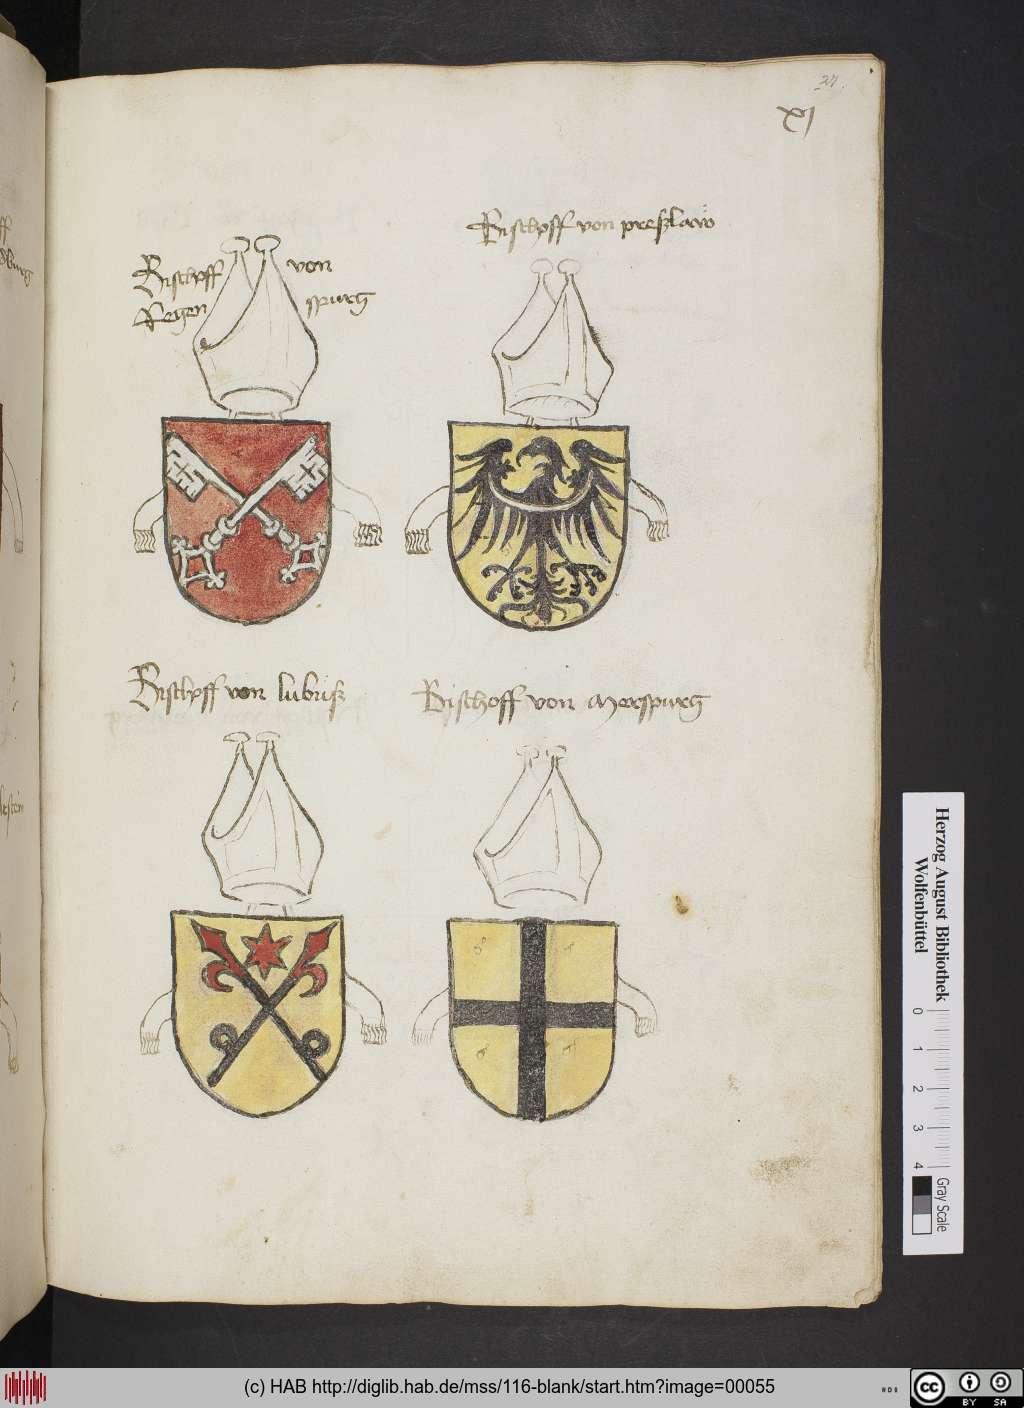 XI
Bischpff von
Regen spurg
Bischpff von preßlaw
Bischpff von lubuß
Bischoff von Merspurg
Herzog August Bibliothek
Wolfenbüttel
0 1 2 3 4
Gray Scale
(c) HAB http://diglib.hab.de/mss/116-blank/start.htm?image=00055
cc BY SA